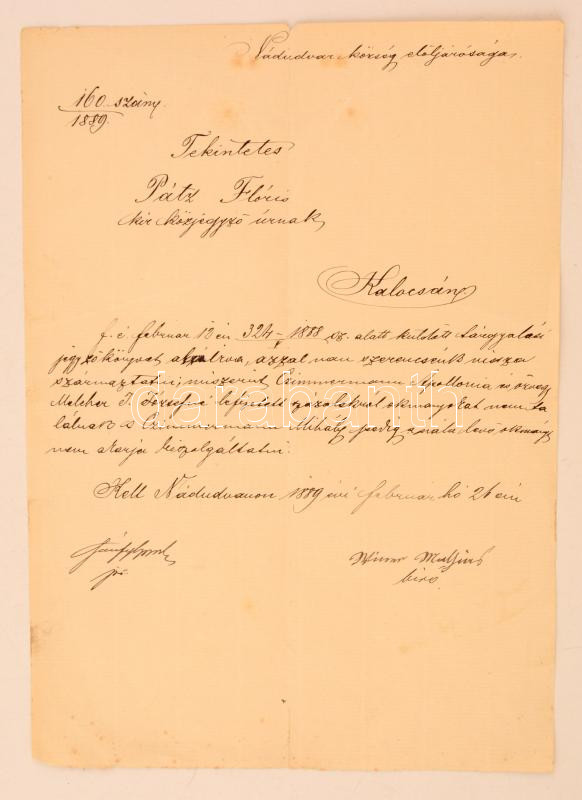 Nádudvar község elöljárósága.
160 szám.
1889.
Tekintetes
Pátz Flóris
kir közjegyző úrnak
Kalocsán
f. é. február 12 én 324-1888 sz. alatt küldött tárgyalási
jegyzőkönyvet aláírva, azzal van szerencsénk vissza
származtatni, miszerint Czimmermann Apollonia és özvegy
Melcher J. Józsefné lefizetést igazoló okmányokat nem ta
lálnak s Czimmermann Mihály pedig a nála levő okmányt
nem akarja kiszolgáltatni.
Kelt Nádudvaron 1889 évi február hó 26 án
jző.
Mátyás
biró.
darabanth